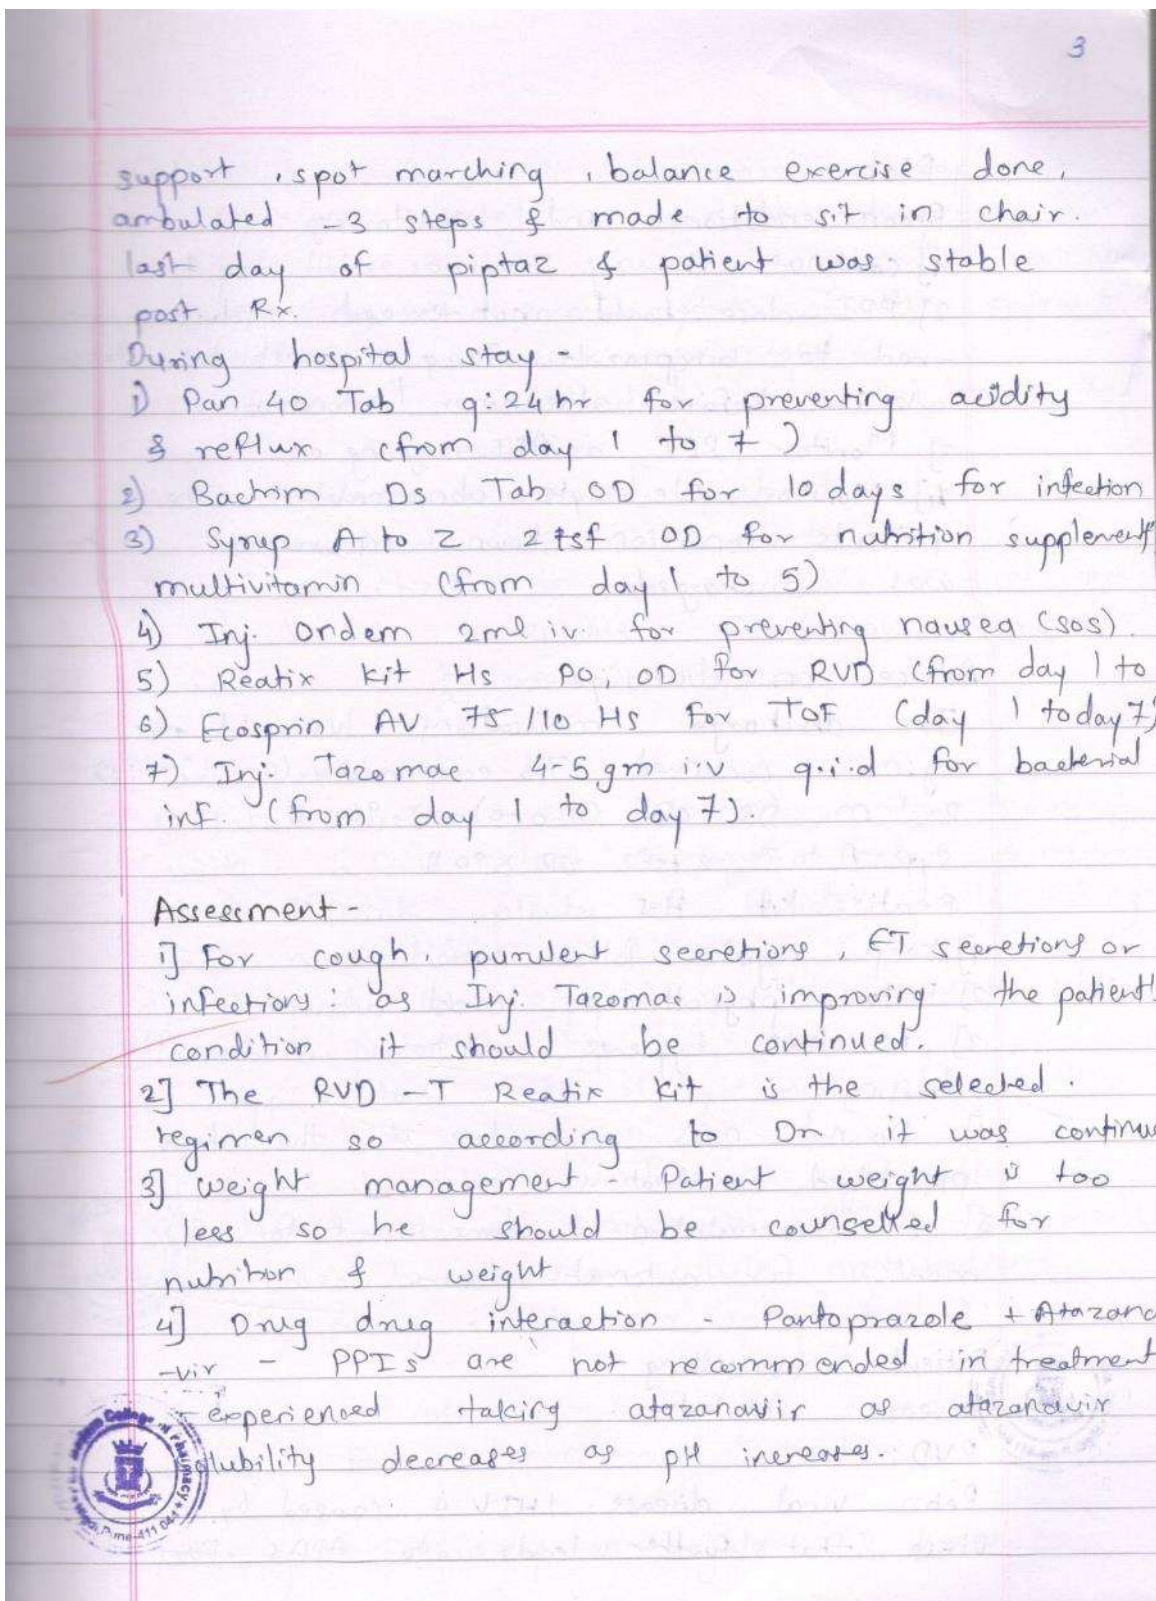 3
support , spot marching , balance exercise done,
ambulated - 3 steps & made to sit in chair.
last day of piptaz & patient was stable
post Rx.
During hospital stay -
1) Pan 40 Tab q: 24 hr for preventing acidity
& reflux (from day 1 to 7)
2) Bactrim Ds Tab OD for 10 days for infection
3) Syrup A to Z 2 tsf OD for nutrition supplement
multivitamin (from day 1 to 5)
4) Inj. Ondem 2ml iv. for preventing nausea (sos).
5) Reatix kit Hs PO, OD for RVD (from day 1 to
6) Ecosprin AV 75/10 Hs For TOF (day 1 to day 7)
7) Inj. Tazomac 4-5 gm i.v q.i.d for bacterial
inf. (from day 1 to day 7).
Assessment -
1] For cough, purulent secretions, ET secretions or
infections: as Inj. Tazomac is improving the patient's
condition it should be continued.
2] The RVD - T Reatix Kit is the selected.
regimen so according to Dr it was continu
3] Weight management - Patient weight is too
less so he should be counselled for
nutrition & weight
4] Drug drug interaction - Pantoprazole + Atazana
-vir - PPIs are not recommended in treatment
- experienced taking atazanavir as atazanavir
olubility decreases as pH increases.
College of Pharmacy
Pune-411 044